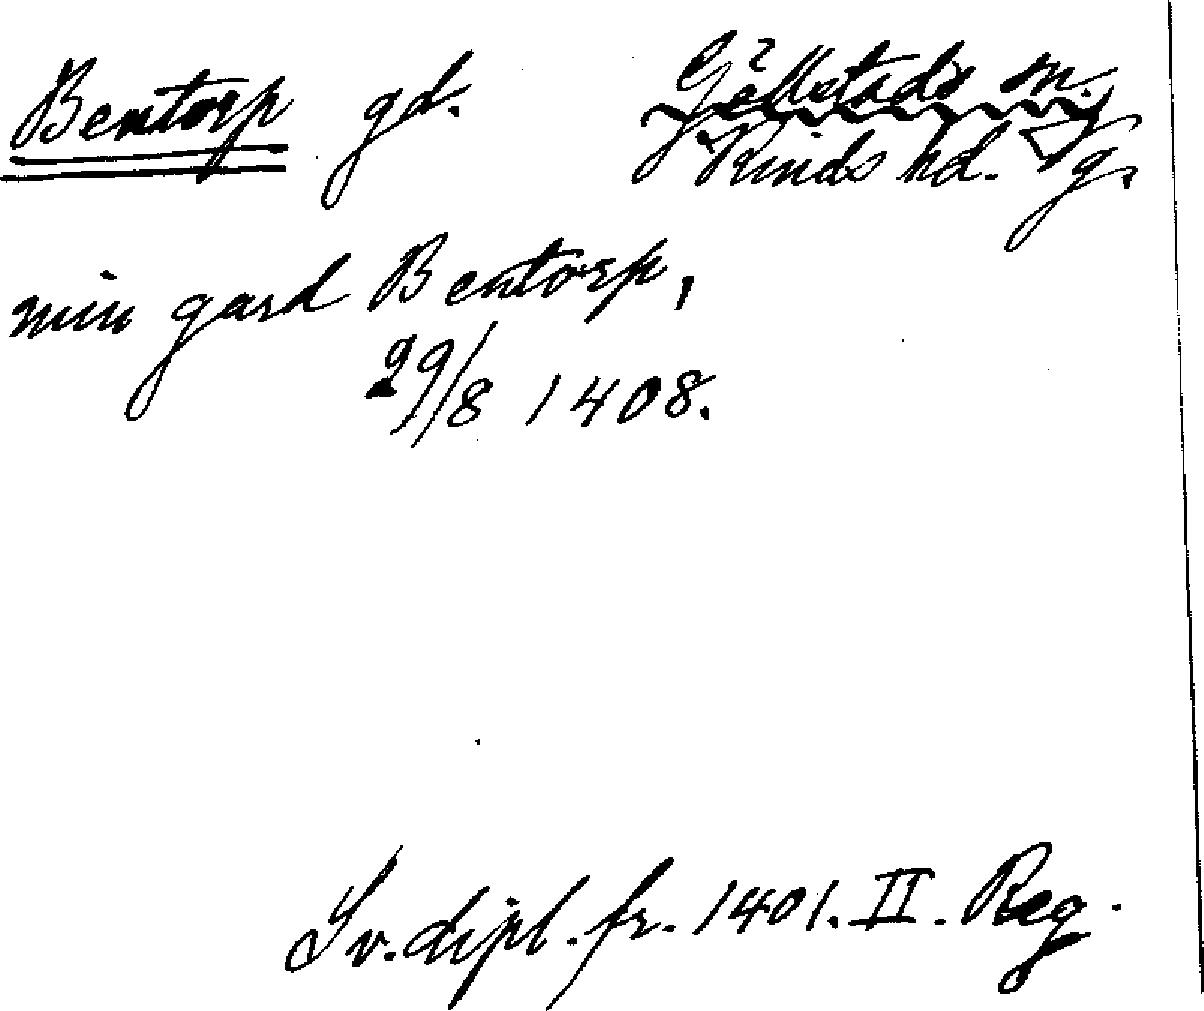 Bentorp gd. Gällstads sn.
Kinds hd. Vg.
min gard Bentorp,
29/8 1408.
Sv. dipl. fr. 1401. II. Reg.